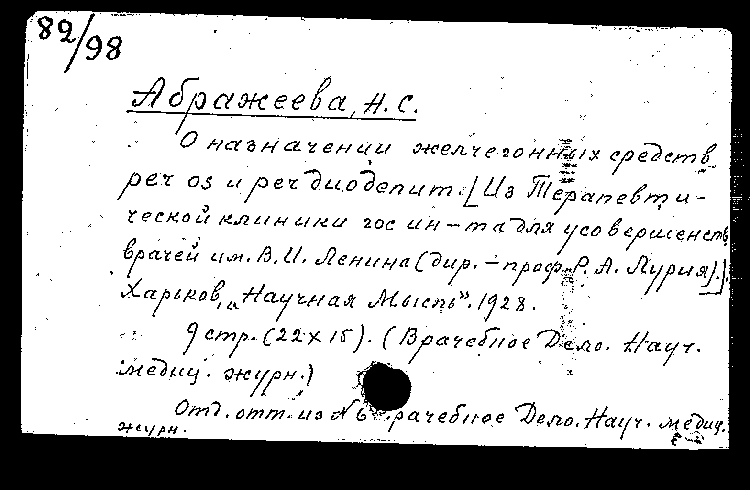 82/98
Абражеева, Н. С.
О назначении желчегонных средств
per os и per диоденит. [Из Терапевти-
ческой клиники гос ин-та для усовершенств
врачей им. В. И. Ленина (дир. - проф. Р. А. Лурия).].
Харьков, „Научная Мысль". 1928.
9 стр. (22 x 15). (Врачебное Дело. Науч.
медиц. журн.)
Отд. отт. из № 6 рачебное Дело. Науч. медиц.
журн.